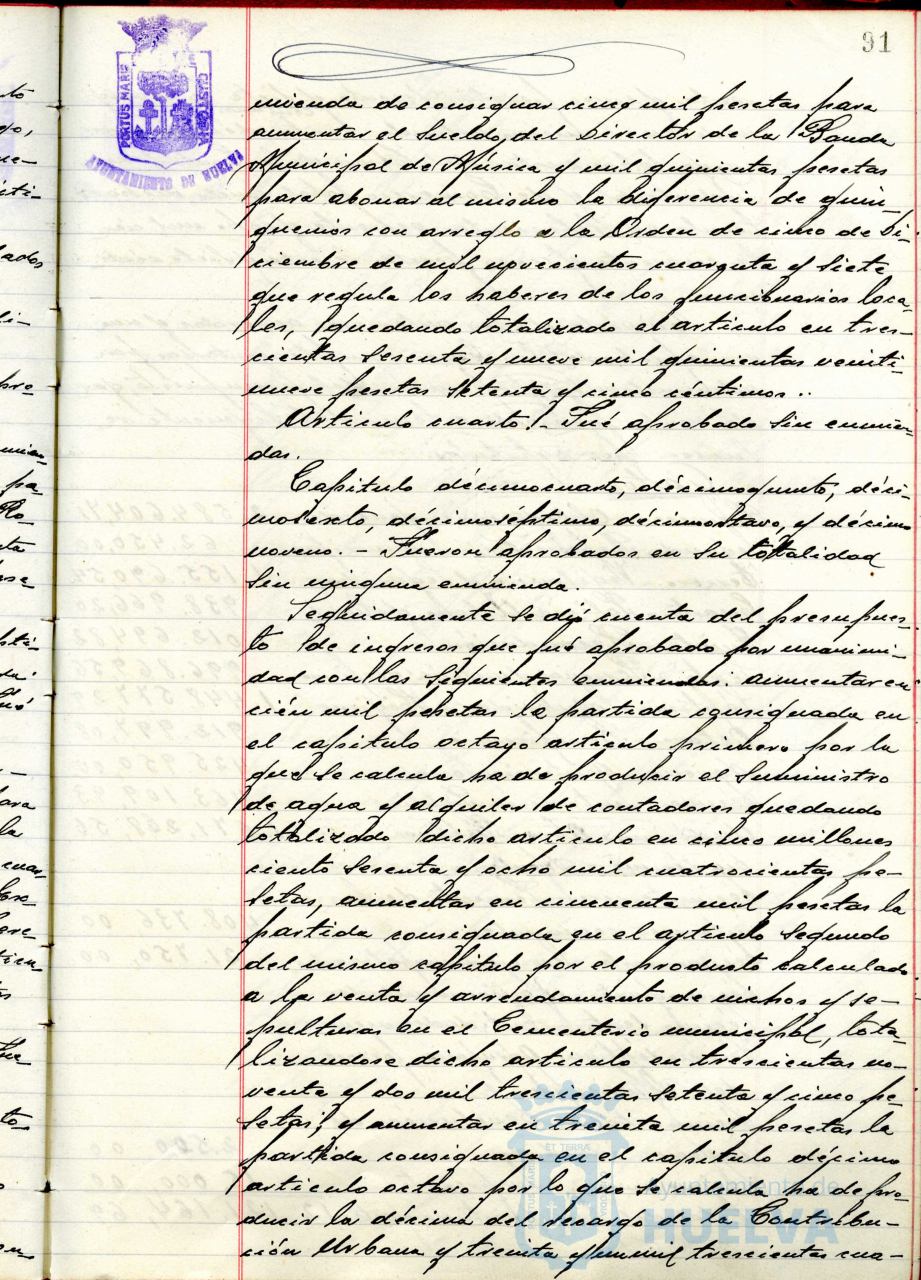 91
PORTUS MARIS CUSTODIA
AYUNTAMIENTO DE HUELVA
mienda de consignar cinco mil pesetas para
aumentar el sueldo, del Director de la Banda
Municipal de Música y mil quinientas pesetas
para abonar al mismo la diferencia de quin-
quenios con arreglo a la Orden de cinco de Di-
ciembre de mil novecientos cuarenta y siete
que regula los haberes de los funcionarios loca-
les, quedando totalizado el artículo en tres-
cientas sesenta y nueve mil quinientas veinti-
nueve pesetas setenta y cinco céntimos..
Artículo cuarto.- Fué aprobado sin enmien-
das.
Capítulo décimocuarto, décimoquinto, déci-
mosexto, décimoséptimo, décimoctavo, y décimo
noveno.- Fueron aprobados en su totalidad
sin ninguna enmienda.
Seguidamente se dió cuenta del presupues-
to de ingresos que fué aprobado por unanimi-
dad con las siguientes enmiendas: aumentar en
cién mil pesetas la partida consignada en
el capítulo octavo artículo primero por la
que se calcula ha de producir el suministro
de agua y alquiler de contadores quedando
totalizado dicho artículo en cinco millones
ciento sesenta y ocho mil cuatrocientas pe-
setas, aumentar en cincuenta mil pesetas la
partida consignada en el artículo segundo
del mismo capítulo por el producto calculado
a la venta y arrendamiento de nichos y se-
pulturas en el Cementerio municipal, tota-
lizandose dicho artículo en trescientas no-
venta y dos mil trescientas setenta y cinco pe-
setas; y aumentar en treinta mil pesetas la
partida consignada en el capítulo décimo
artículo octavo por lo que se calcula ha de pro-
ducir la décima del recargo de la Contribu-
ción Urbana y treinta y un mil trescientas cua-
Ayuntamiento de
HUELVA